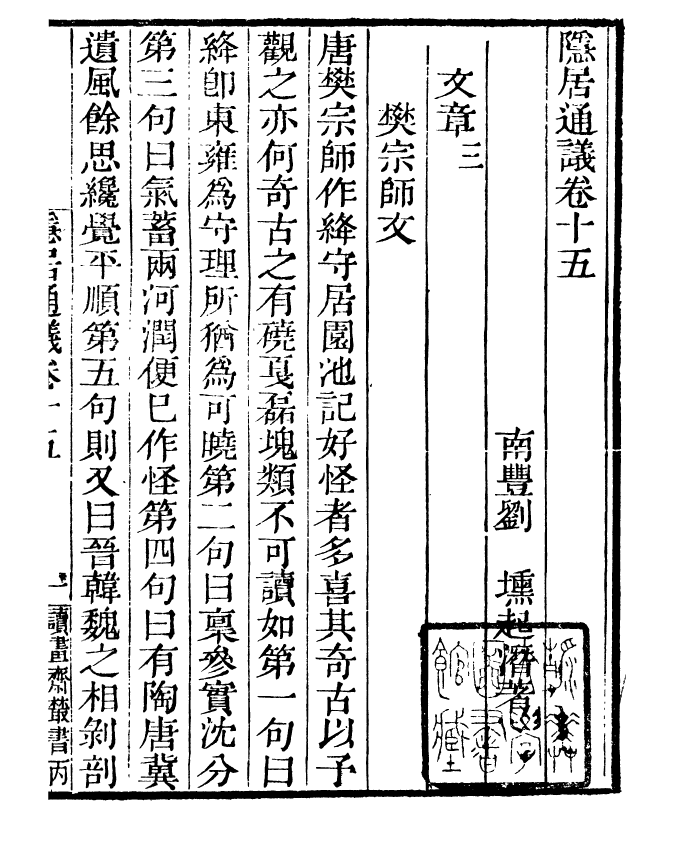 隱居通議卷十五
南豐劉　壎起潛著
文章三
樊宗師文
唐樊宗師作絳守居園池記好怪者多喜其奇古以予
觀之亦何奇古之有磽戛磊塊類不可讀如第一句曰
絳即東雍為守理所猶為可曉第二句曰稟參實沈分
第三句曰氣蓄兩河潤便已作怪第四句曰有陶唐冀
遺風餘思纔覺平順第五句則又曰晉韓魏之相剝剖
隱居通議卷十五
一
讀畫齋叢書丙